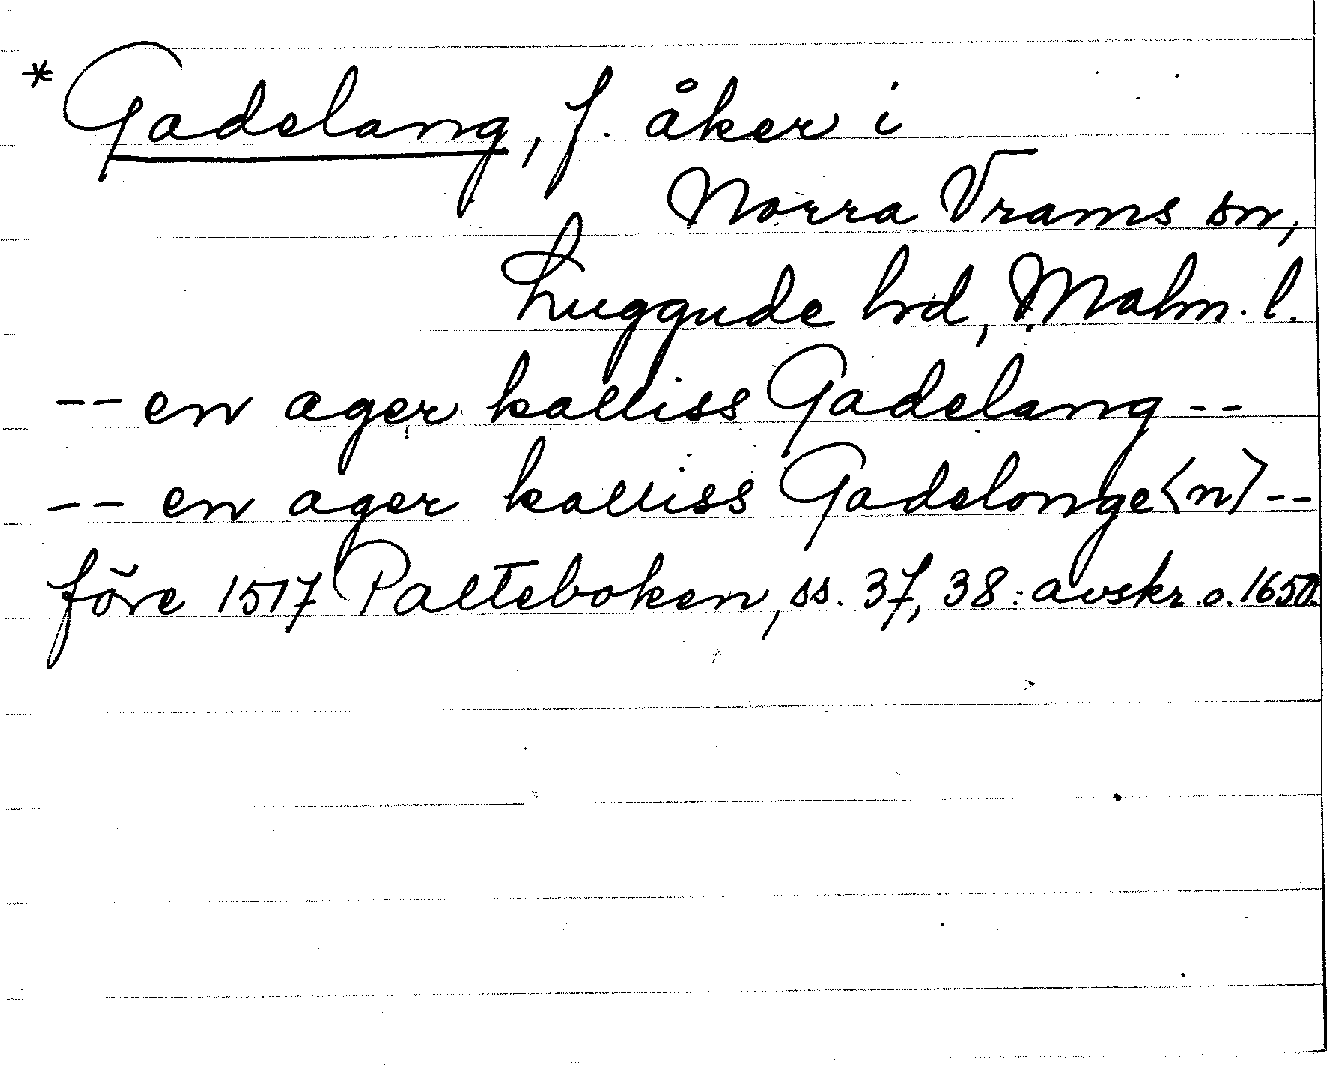 * Gadelang, f. åker i
Norra Vrams sn,
Luggude hd, Malm. l.
-- en ager kalliss Gadelang --
-- en ager kalliss Gadelonge<n> --
före 1517 Palteboken, ss. 37, 38: avskr. o. 1650.